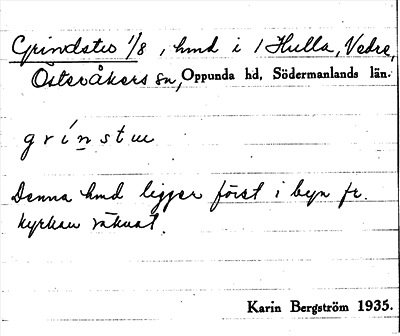 Grindstu 1/8, hmd i 1 Hulla, Vedra,
Österåkers sn, Oppunda hd, Södermanlands län.
grínstu
Denna hmd ligger först i byn fr.
kyrkan räknat.
Karin Bergström 1935.